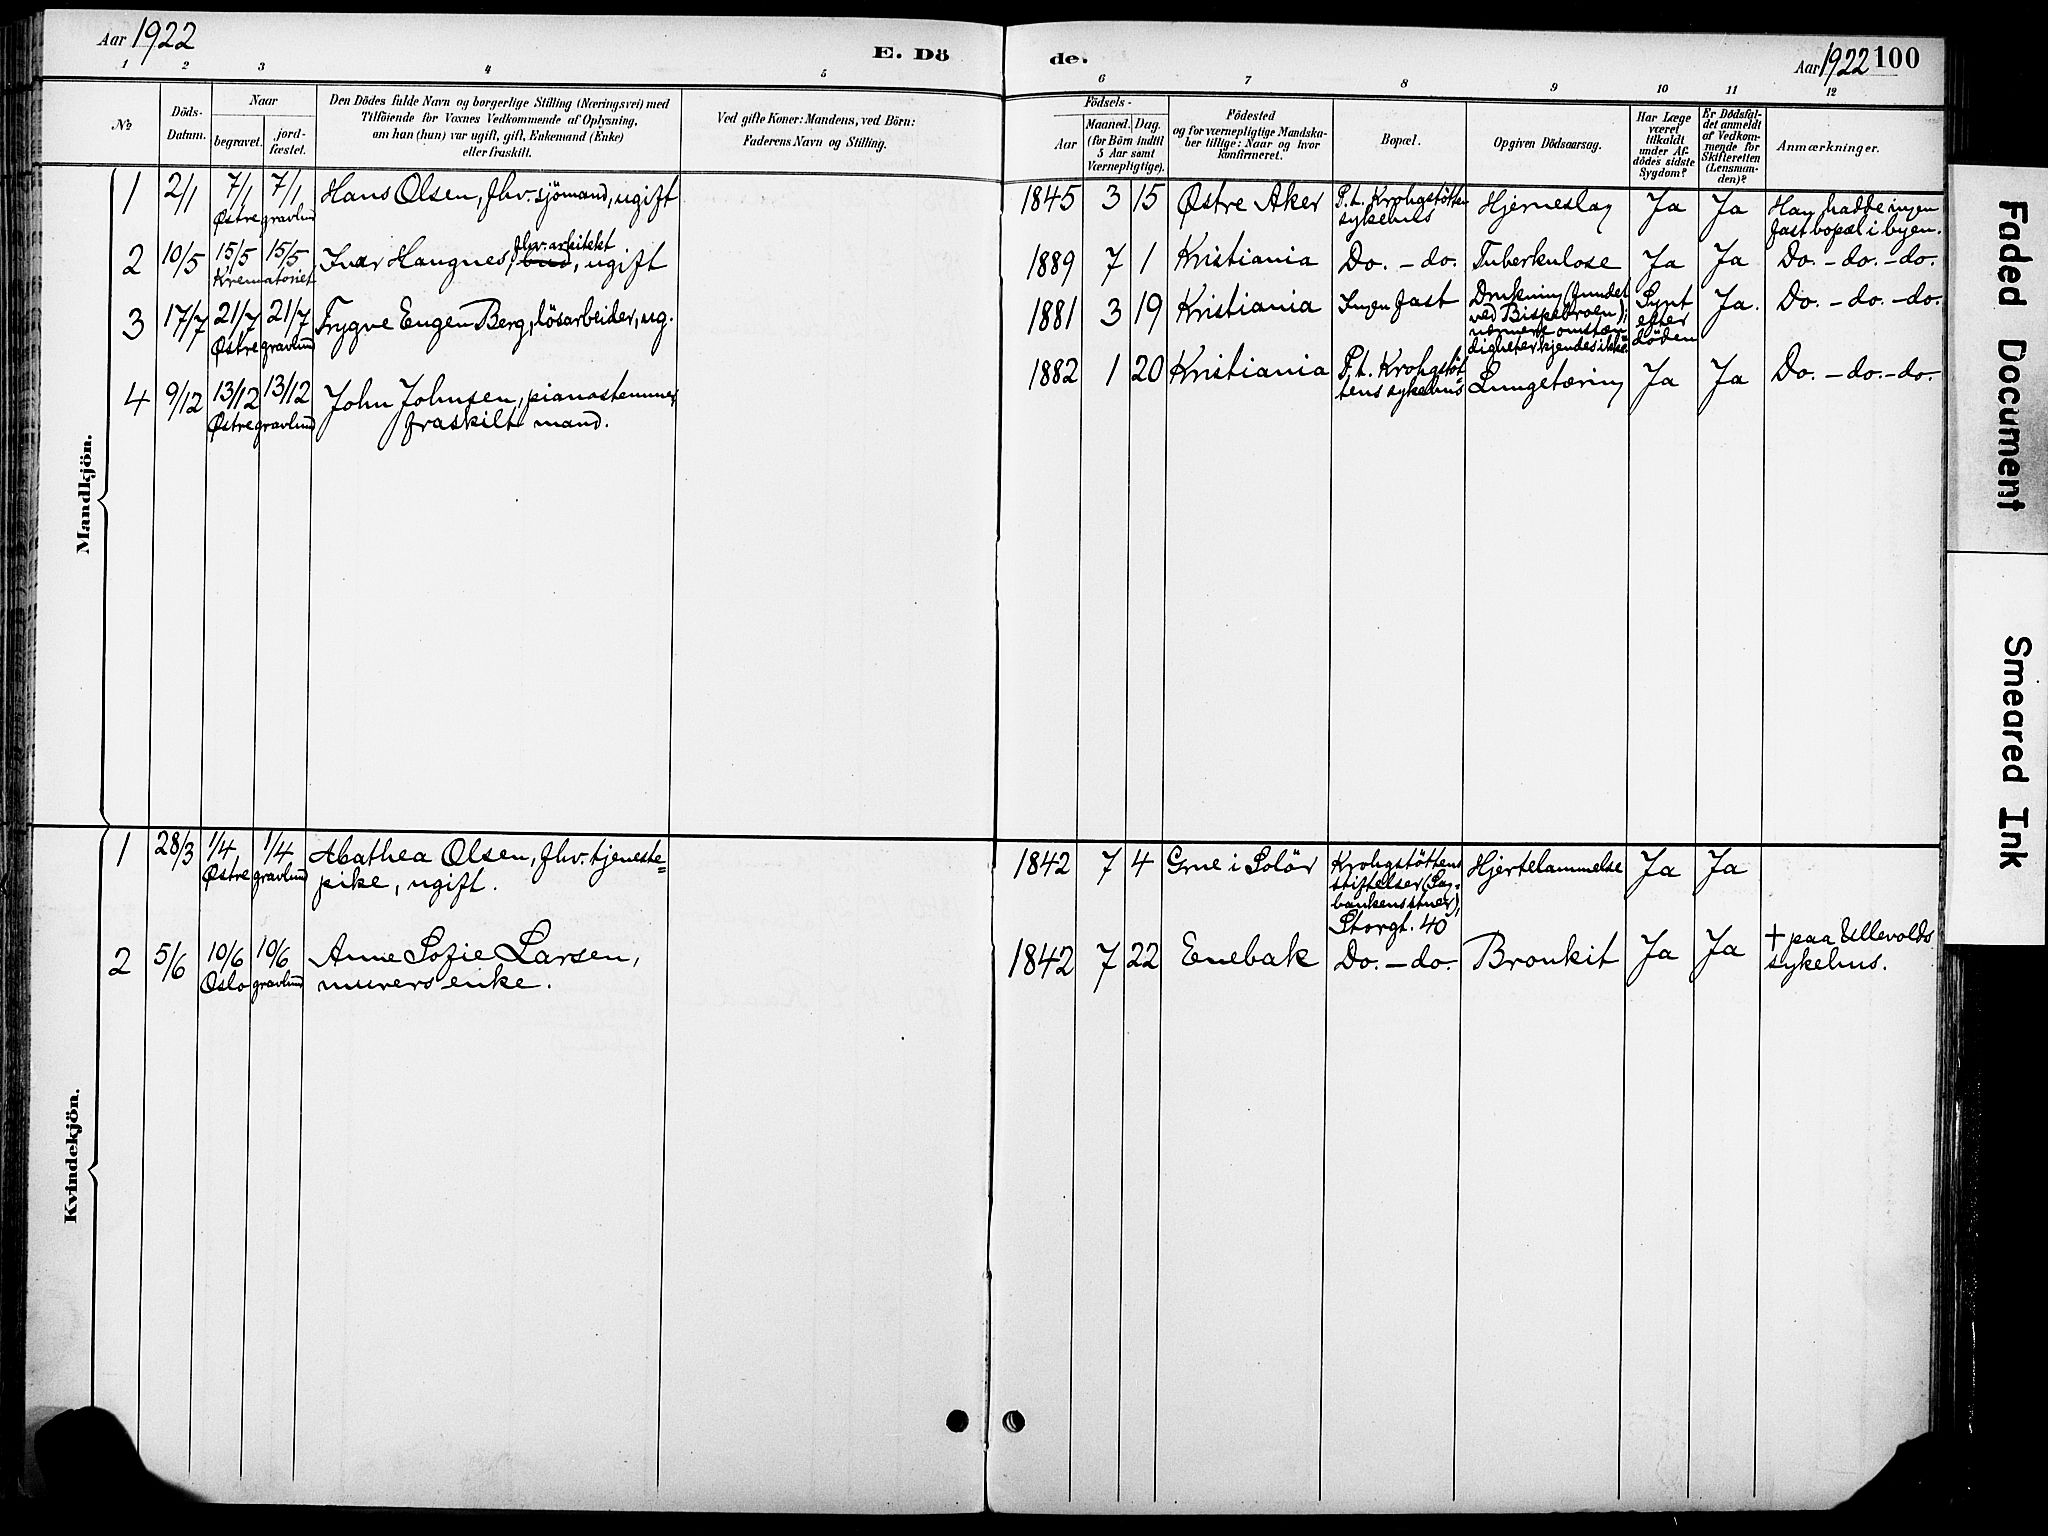 Aar 1922
E. Dö
de.
Aar 1922 100
1 2 3 4 5 6 7 8 9 10 11 12
№
Döds-
Datum.
Naar
begravet.
jord-
fæstet.
Den Dödes fulde Navn og borgerlige Stilling (Næringsvei) med
Tilföiende for Voxnes Vedkommende af Oplysning,
om han (hun) var ugift, gift, Enkemand (Enke)
eller fraskilt.
Ved gifte Koner: Mandens, ved Börn:
Faderens Navn og Stilling.
Födsels-
Aar
Maaned.
Dag.
(for Börn indtil
5 Aar samt
Værnepligtige).
Födested
og for værnepligtige Mandska-
ber tillige: Naar og hvor
konfirmeret.
Bopæl.
Opgiven Dödsaarsag.
Har Læge
været
tilkaldt
under Af-
dödes sidste
Sygdom?
Er Dödsfal-
det anmeldt
af Vedkom-
mende for
Skifteretten
(Lensman-
den)?
Anmærkninger.
Mandkjön.
1 2/1 7/1 7/1 Hans Olsen, fhv. sjömand, ugift
Østre gravlund
1845 3 15 Østre Aker
P.t. Krohgstötten
sykehus
Hjerneslag Ja Ja
Han hadde ingen
fast bopæl i byen.
2 10/5 15/5 15/5
Krematoriet
fhv. arkitekt
Ivar Haugnes, bud, ugift
1889 7 1 Kristiania Do. - do. Tuberkulose Ja Ja Do. - do. - do.
3 17/7 21/7 21/7 Trygve Eugen Berg, lösarbeider, ug.
Østre gravlund
1881 3 19 Kristiania Ingen fast
Drukning (fundet
ved Bispebroen);
nærmere omstæn
digheter kjendes ikke.
Synt
efter
döden
Ja. Do. - do. - do.
4 9/12 13/12 13/12 John Johnsen, pianostemmer,
Østre gravlund fraskilt mand.
1882 1 20 Kristiania
P.t. Krohgstöt
tens sykehus
Lungetæring Ja Ja Do. - do. - do.
Kvindekjön.
1 28/3 1/4 1/4 Abathea Olsen, fhv. tjeneste=
Østre gravlund pike, ugift.
1842 7 4 Grue i Solör
Krohgstöttens
stiftelser (Sag-
bankens stuer),
Storgt. 40
Hjertelammelse Ja Ja
2 5/6 10/6 10/6 Anne Sofie Larsen,
Oslo gravlund murers enke.
1842 7 22 Enebak Do. - do. Bronkit Ja Ja
+ paa Ullevolds
sykehus.
Faded Document
Smeared Ink